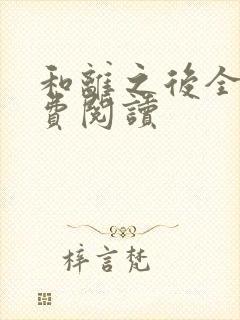 和離之後全
費閱讀
梓言梵